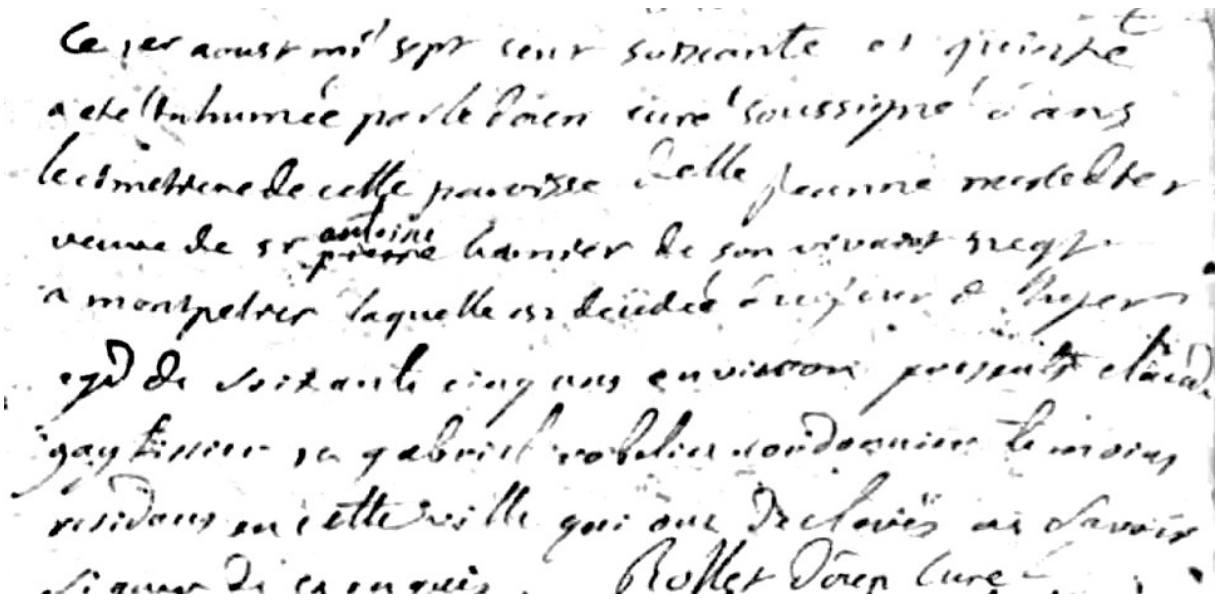 Ce 1er aoust mil sept cent soixante et quinze
a eté inhumée par le doien curé soussigné dans
le cimetiere de cette paroisse delle Jeanne
veuve de sr antoine pierre hamier de son vivant negt
a montpelier laquelle est décédée aujourd'huy
agé de soixante cinq ans environ presents claude
gay tissier et gabriel cordonnier temoins
residans en cette ville qui ont declarés ne savoir
signer de ce enquis. Rollet doien Curé